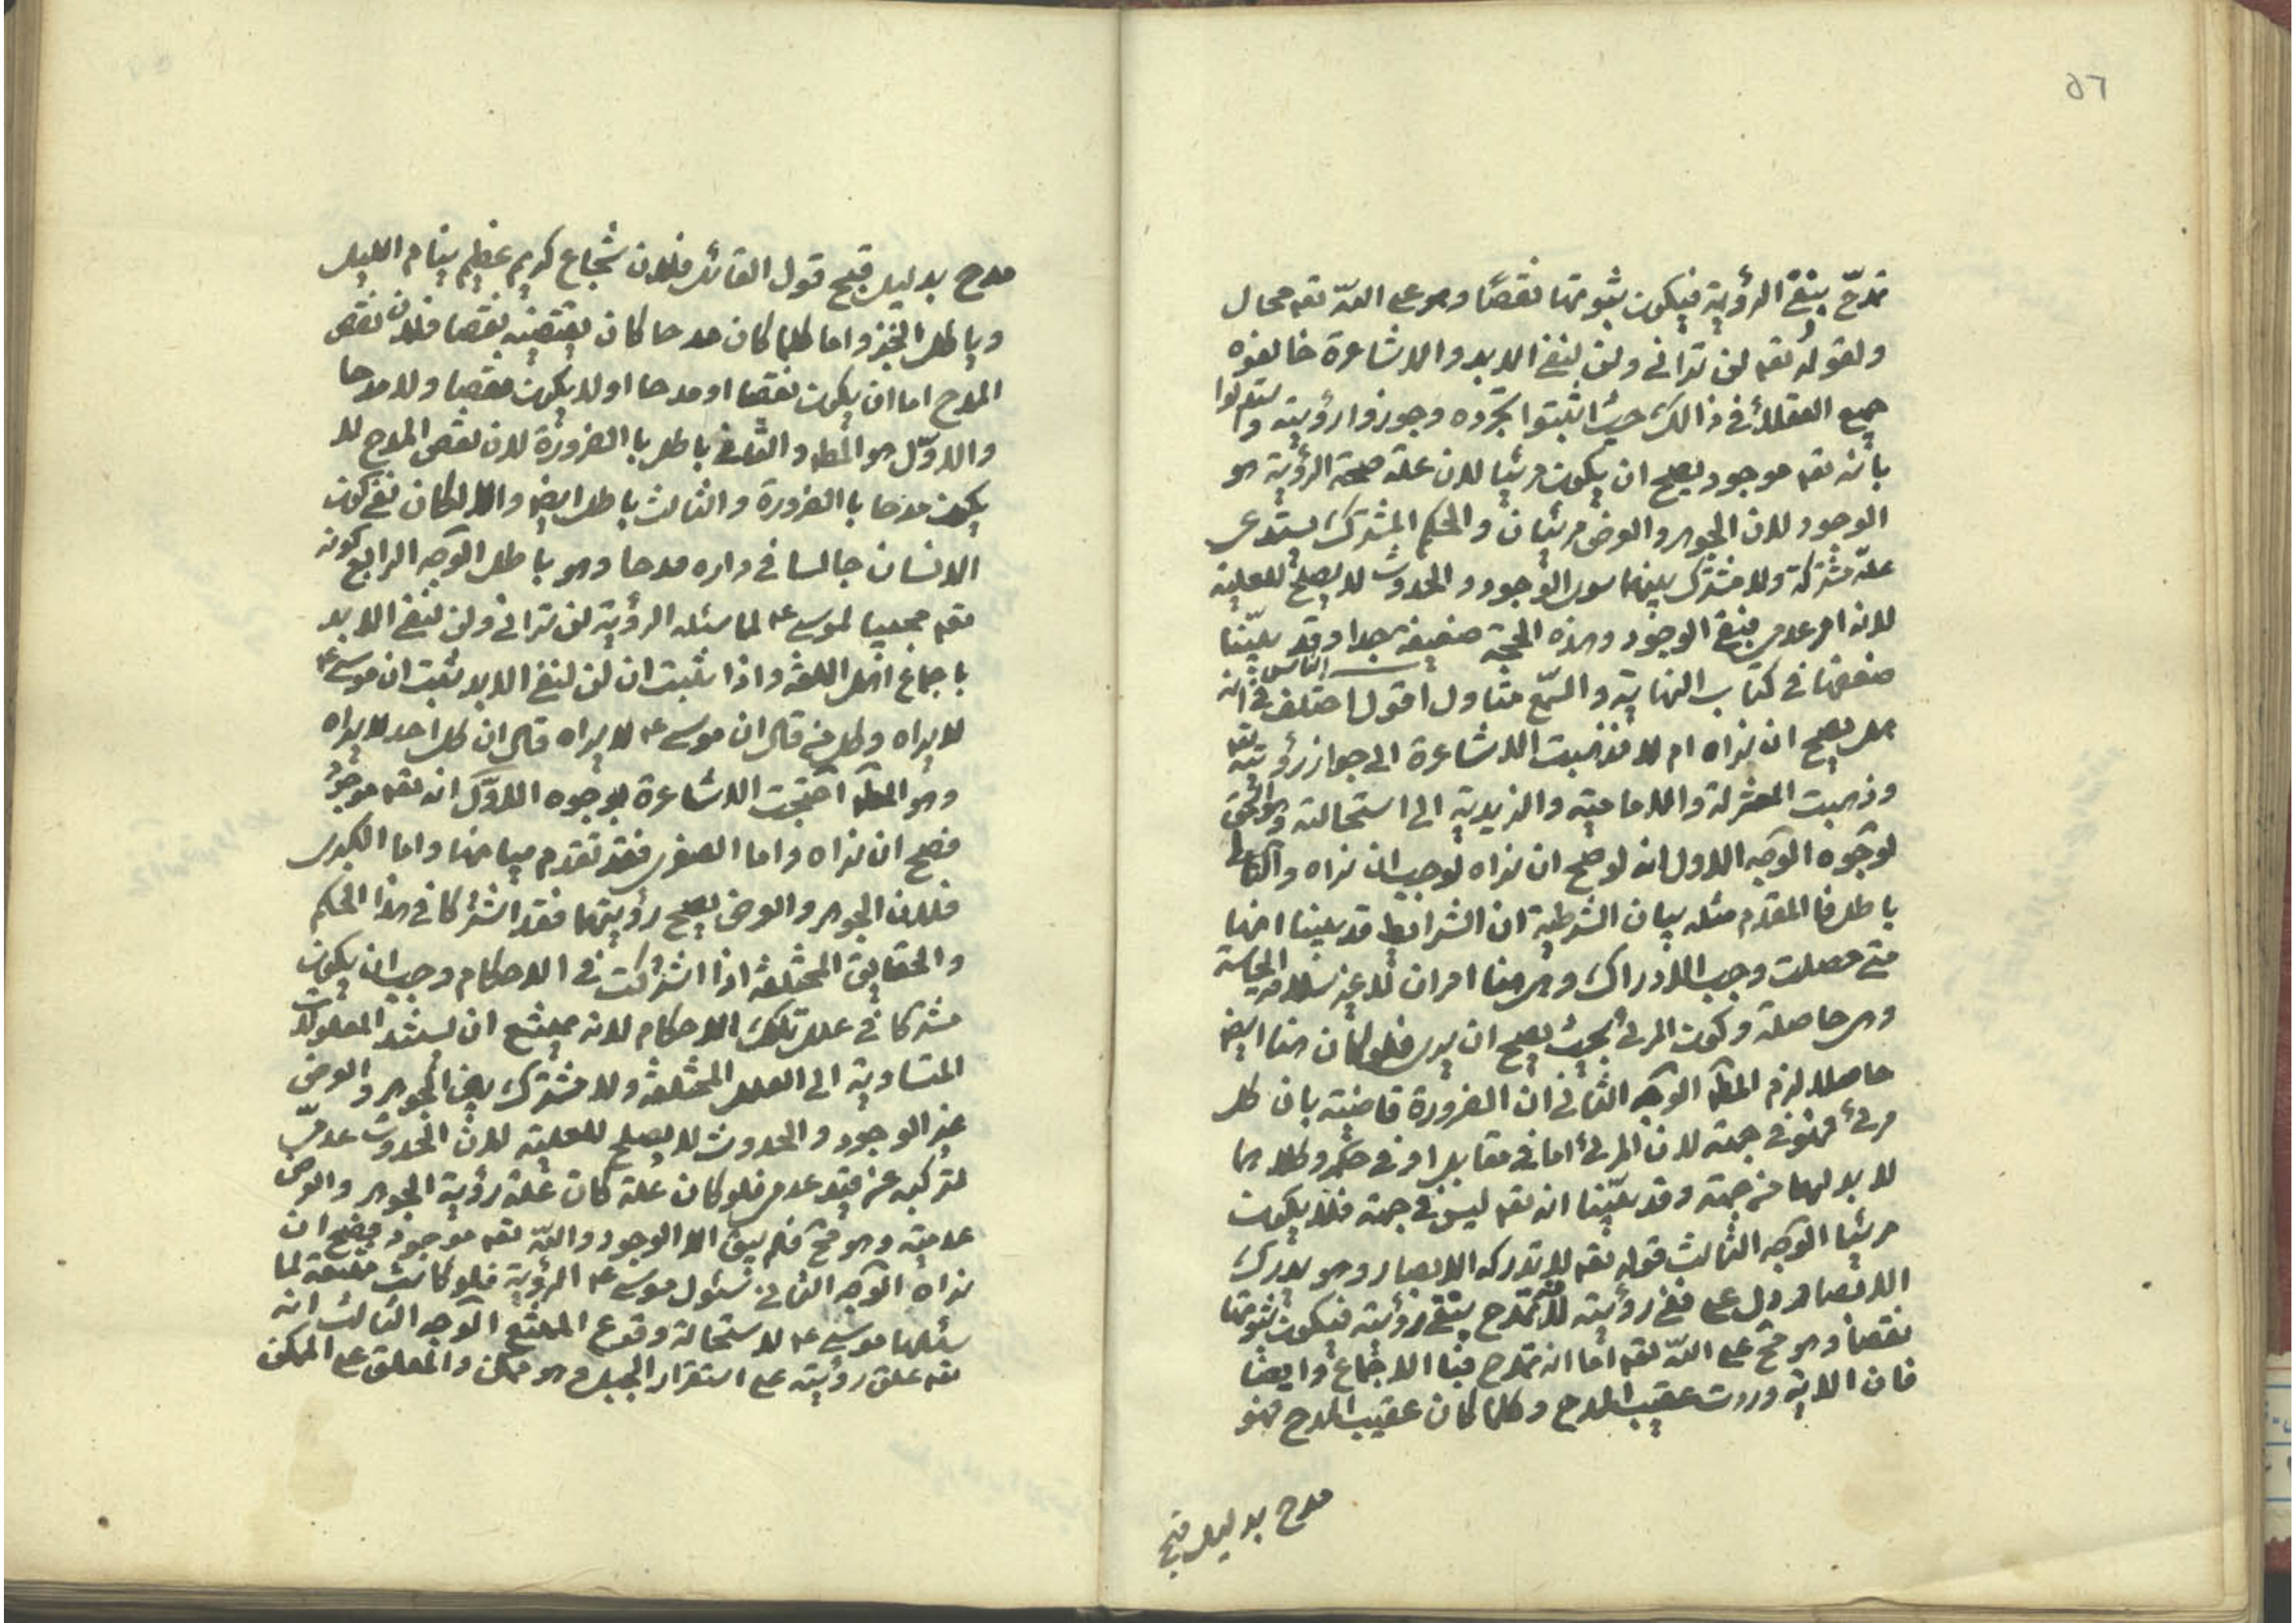 ٥٦
تمدّح بنفى الرؤية فيكون ثبوتها نقصًا وهو على اللّه تعه محال
ولقوله تعه لن ترانى ولن لنفى الابد والاشاعرة خالفوه
جميع العقلاء فى ذالك حيث اثبتوا تجرده وجوزوا رؤيته واستدلوا
بانه تعه موجود يصح ان يكون مرئيا لان علة صحة الرؤية هو
الوجود لان الجوهر والعرض مرئيان والحكم المشترك يستدعى
علّة مشتركة ولا مشترك بينهما سوى الوجود والحدوث لا يصلح للعلية
لانه امر عدمى فبقى الوجود وهذه الحجة ضعيفة جدا وقد بيّنّا
ضعفها فى كتاب النهاية والسمع متاول اقول اختلف الناس فى انه
هل يصح ان نراه ام لا فذهبت الاشاعرة الى جواز رؤيته تعه
وذهبت المعتزلة والامامية والزيدية الى استحالته وهو الحق
لوجوه الوجه الاول انه لو صح ان نراه لوجب ان نراه والتالى
باطل فالمقدم مثله بيان الشرطية ان الشرائط قد بينا انها
متى حصلت وجب الادراك وهى هنا امران لا غير سلامة الحاسة
وهى حاصلة وكون المرئى بحيث يصح ان يرى فلو كان هنا ايض
حاصلا لزم المطه الوجه الثانى ان الضرورة قاضية بان كل
مرئى فهو فى جهة لان المرئى اما فى مقابل او فى حكمه وكلاهما
لا بد لهما من جهة وقد بيّنّا انه تعه ليس فى جهة فلا يكون
مرئيا الوجه الثالث قوله تعه لا تدركه الابصار وهو يدرك
الابصار دل على نفى رؤيته لانه تمدح بنفى رؤيته فيكون ثبوتها
نقصا وهو مح على اللّه تعه اما انه تمدح فبا الاجماع وايضا
فان الاية وردت عقيب المدح وكلما كان عقيب المدح فهو
مدح بدليل قبح
مدح بدليل قبح قول القائل فلان شجاع كريم عظيم ينام الليل
وياكل الخبز واما كلما كان مدحا كان نقيضه نقصا فلان نقض
المدح اما ان يكون نقصا او مدحا او لا يكون نقصا ولا مدحا
والاوّل هو المطه والثانى باطل با الضرورة لان نقض المدح لا
يكون مدحا با الضرورة والثالث باطل ايض والا لكان نفى كون
الانسان جالسا فى داره مدحا وهو باطل الوجه الرابع كونه
تعه مجيبا لموسى ع لما سئله الرؤية لن ترانى ولن لنفى الابد
باجماع اهل اللغة واذا ثبت ان لن لنفى الابد ثبت ان موسى ع
لا يراه وكل من قال ان موسى ع لا يراه قال ان كل احد لا يراه
وهو المطه احتجت الاشاعرة بوجوه الاوّل انه تعه موجود
فصح ان نراه واما الصغرى فقد تقدم بيانها واما الكبرى
فلان الجوهر والعرض يصح رؤيتهما فقد اشتركا فى هذا الحكم
والحقايق المختلفة اذا اشتركت فى الاحكام وجب ان يكون
مشتركا فى علل تلك الاحكام لانه يمتنع ان يستند المعلولات
المتساوية الى العلل المختلفة ولا مشترك بين الجوهر والعرض
غير الوجود والحدوث لا يصلح للعلية لان الحدوث عدمىّ
لتركبه عن قيد عدمى فلو كان علة كان علة رؤية الجوهر والعرض
عدمية وهو مح فلم يبق الا الوجود واللّه تعه موجود فيصح ان
نراه الوجه الثانى سئول موسى ع الرؤية فلو كانت ممتنعة لما
سئلها موسى ع لاستحالة وقوع الممتنع الوجه الثالث انه
تعه علق رؤيته على استقرار الجبل وهو ممكن والمعلق على الممكن